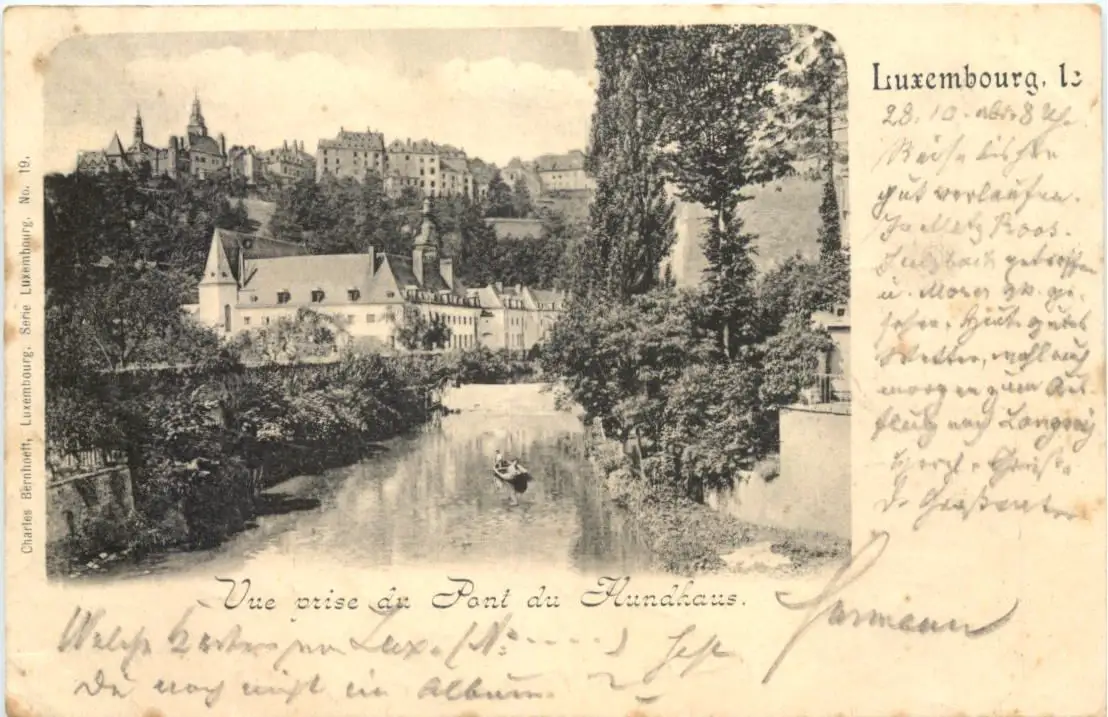 Charles Bernhoeft, Luxembourg. Serie Luxembourg. No. 19.
Luxembourg, le
28. 10. abds 8 Uhr
Reise bisher
gut verlaufen.
In Metz Roos.
getroffen
u. Moser
Heut gutes
Wetter, wohl auch
morgen zum Aus-
flug nach Longwy
Herzl. Grüße
Vue prise du Pont du Hundhaus.
Hermann
Welche Karten von Lux. (No. - - - - -)
Du noch nicht im Album.